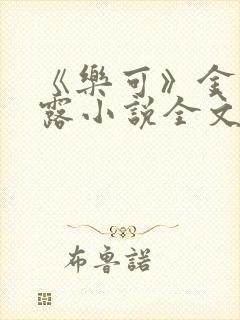 《樂可》金
露小說全文
布魯諾